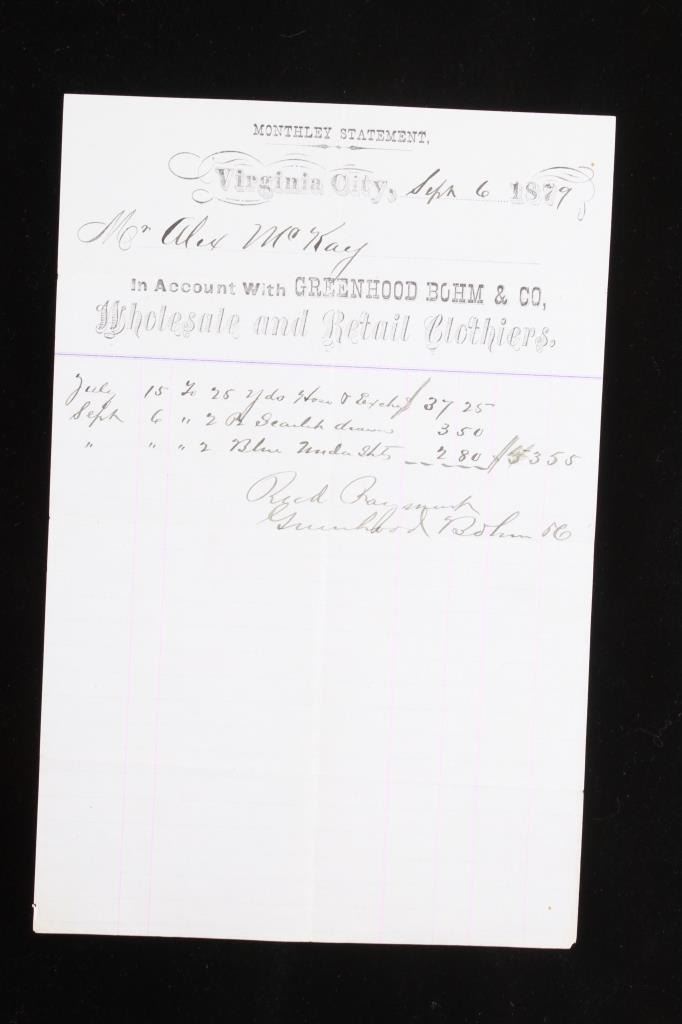 MONTHLEY STATEMENT,
Virginia City, Sept 6 1879
Mr Alex McKay
In Account With GREENHOOD BOHM & CO,
Wholesale and Retail Clothiers.
July 15 To 25 Yds & $ 37 25
Sept 6 " 2 Pr Scarlet drawers 3 50
" " " 2 Blue Under Shts 2 80 $ 3 55
Recd Payment
Greenhood Bohm & Co